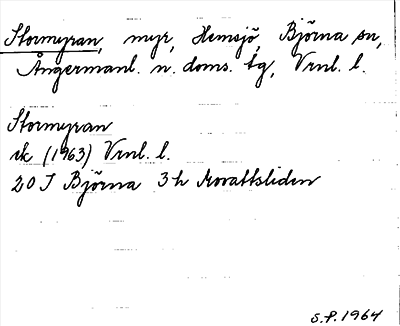 Stormyran, myr, Hemsjö, Björna sn,
Ångermanl. n. doms. tg, Vrnl. l.
Stormyran
rk (1963) Vrnl. l.
20 I Björna 3h Movattsliden
S.P. 1964